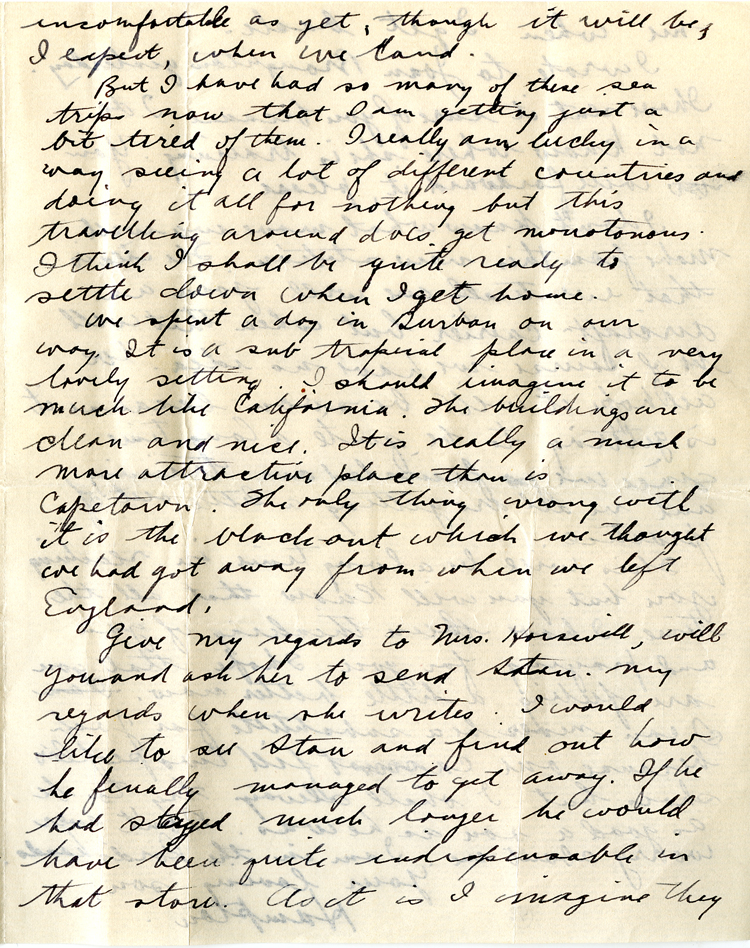 incomfortable as yet, though it will be,
I expect, when we land.
But I have had so many of these sea
trips now that I am getting just a
bit tired of them. I really am lucky in a
way seeing a lot of different countries and
doing it all for nothing but this
travelling around does get monotonous.
I think I shall be quite ready to
settle down when I get home.
We spent a day in Durban on our
way. It is a sub tropical place in a very
lovely setting. I should imagine it to be
much like California. The buildings are
clean and nice. It is really a much
more attractive place than is
Capetown. The only thing wrong with
it is the blackout which we thought
we had got away from when we left
England.
Give my regards to Mrs. Horswill, will
you and ask her to send Stan. my
regards when she writes. I would
like to see Stan and find out how
he finally managed to get away. If he
had stayed much longer he would
have been quite indispensable in
that store. As it is I imagine they